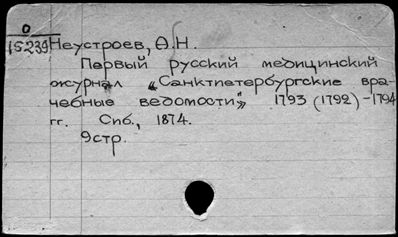 О
15239
Неустроев, Ѳ.Н.
Первый русский медицинский
журнал „Санктпетербургские вра-
чебные ведомости" 1793 (1792) - 1794
гг. Спб., 1874.
9стр.